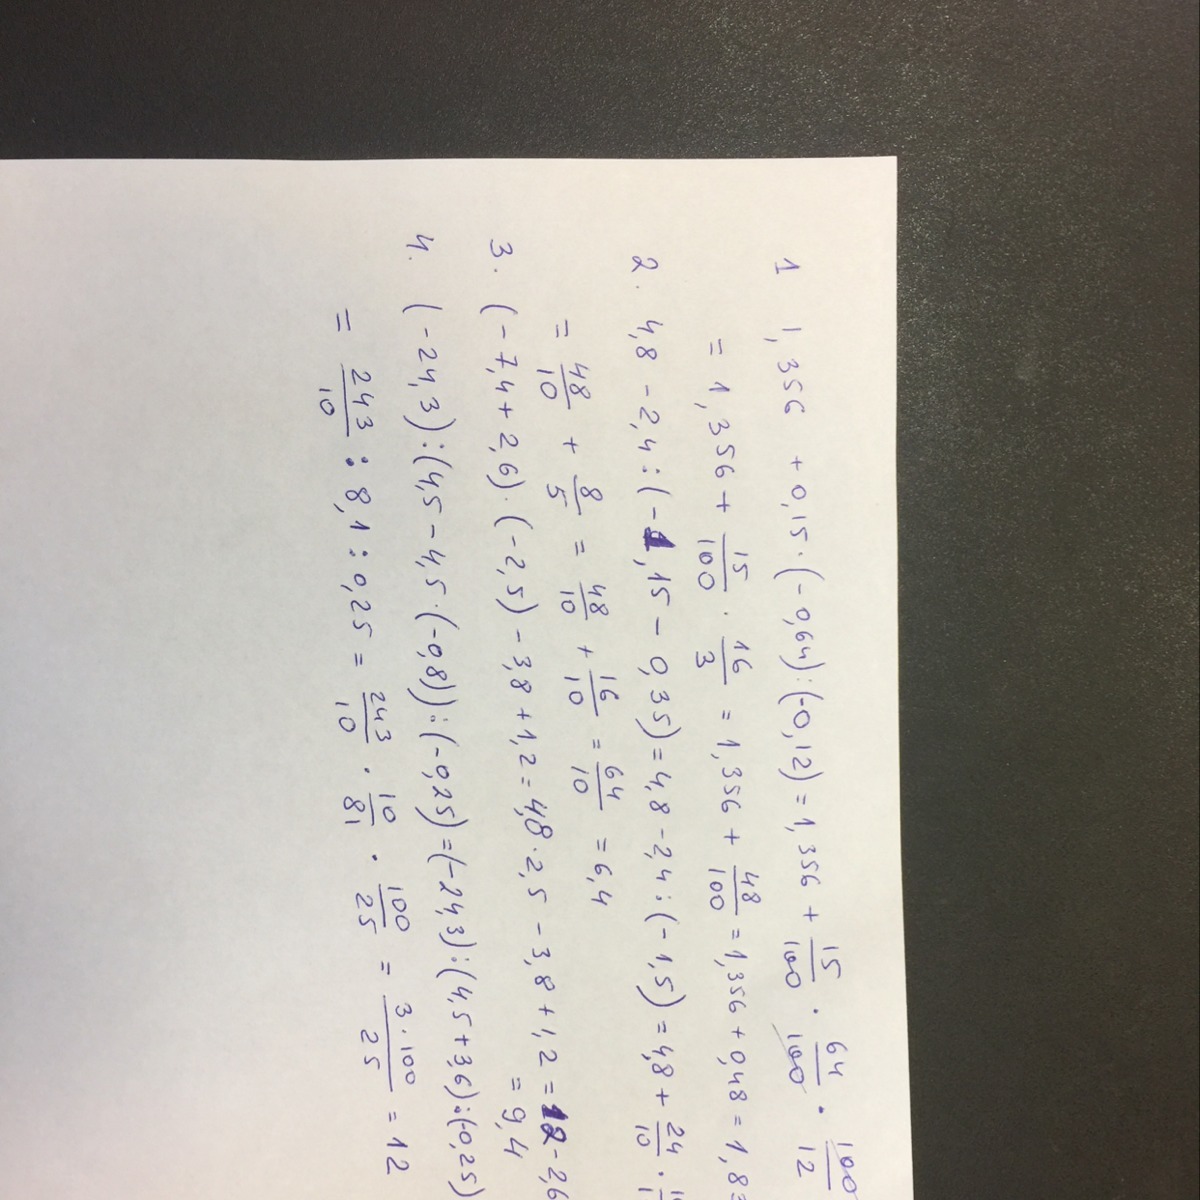 1 1,356 + 0,15 · (-0,64) : (-0,12) = 1,356 + 15/100 · 64/100 · 100/12
= 1,356 + 15/100 · 16/3 = 1,356 + 48/100 = 1,356 + 0,48 = 1,83
2. 4,8 - 2,4 : (-1,15 - 0,35) = 4,8 - 2,4 : (-1,5) = 4,8 + 24/10 ·
= 48/10 + 8/5 = 48/10 + 16/10 = 64/10 = 6,4
3. (-7,4 + 2,6) · (-2,5) - 3,8 + 1,2 = 4,8 · 2,5 - 3,8 + 1,2 = 12 - 2,6
= 9,4
4. (-24,3) : (4,5 - 4,5 · (-0,8)) : (-0,25) = (-24,3) : (4,5 + 3,6) : (-0,25)
= 243/10 : 8,1 : 0,25 = 243/10 · 10/81 · 100/25 = 3·100/25 = 12